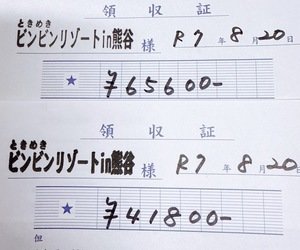 領収証
ときめき
ビンビンリゾートin熊谷 様 R7年8月20日
★ ¥65600-
領収証
ときめき
ビンビンリゾートin熊谷 様 R7年8月20日
★ ¥41800-
但